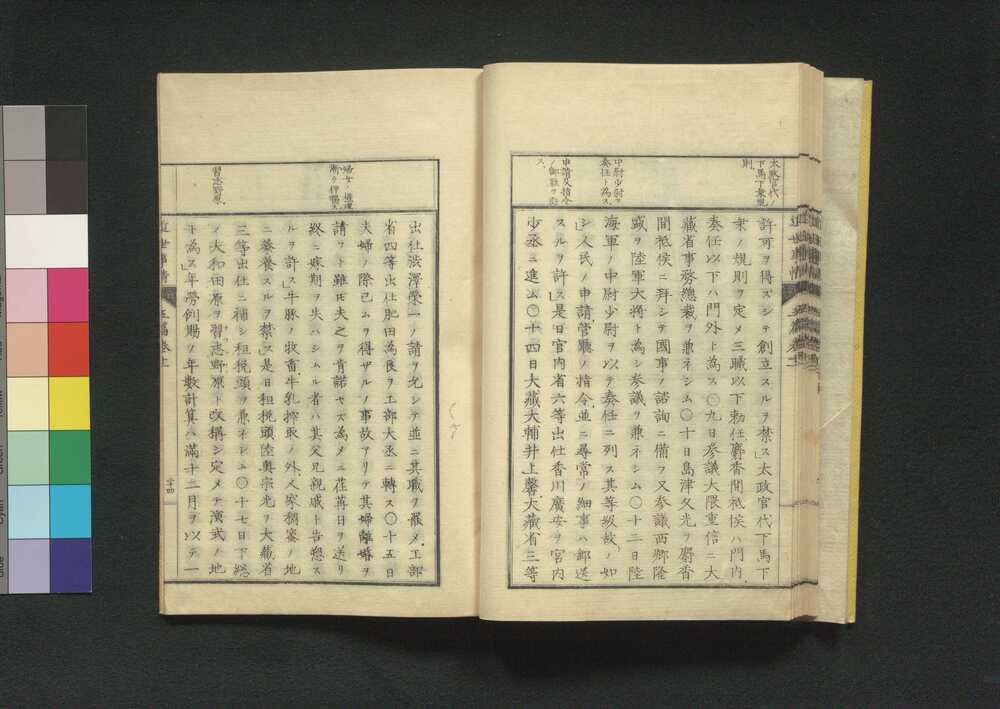 太政官代ノ
下馬下乗規
則
中尉少尉ヲ
奏任ト為ス
申請及指令
ノ郵送ヲ許
ス
許可ヲ得ズシテ創立スルヲ禁ス」太政官代下馬下
乗ノ規則ヲ定メ三職以下勅任麝香間祗候ハ門内
奏任以下ハ門外ト為ス〇九日参議大隈重信ニ大
藏省事務總裁ヲ兼ネシム〇十日島津久光ヲ麝香
間祗侯ニ拜シテ國事ノ諮詢ニ備フ又参議西郷隆
盛ヲ陸軍大將ト為シ参議ヲ兼ネシム〇十二日陸
海軍ノ中尉少尉ヲ以テ奏任ニ列ス其等級故ノ如
シ」人民ノ申請管廳ノ指令並ニ尋常ノ細事ハ郵送
スルヲ許ス」是日宮内省六等出仕香川廣安ヲ宮内
少丞ニ進ム〇十四日大藏大輔井上馨大藏省三等
婦女ノ道理
習志野原
出仕渋澤榮一ノ請ヲ允シテ並ニ其職ヲ罷メ工部
省四等出仕肥田為良ヲ工部大丞ニ轉ス〇十五日
夫婦ノ際已ムヲ得ザルノ事故アリテ其婦離婚ヲ
請フト雖𪜈夫之ヲ肯諾セズ為メニ荏苒日ヲ送リ
終ニ嫁期ヲ失ハシムル者ハ其父兄親戚ト告愬ス
ルヲ許ス」牛豚ノ牧畜牛乳搾取ノ外人家稠密ノ地
ニ豢養スルヲ禁ス」是日租税頭陸奥宗光ヲ大藏省
三等出仕ニ補シ租税頭ヲ兼ネシム〇十七日下總
ノ大和田原ヲ習志野原ト改稱シ定メテ演武ノ地
ト為ス」年勞例賜ノ年數計算ハ滿十二月ヲ以テ一
近世事情
五篇巻十一
十四